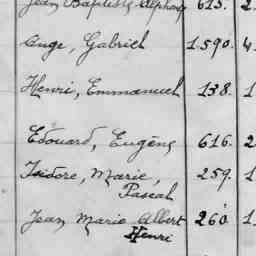 Jean Baptiste Alphon 613. 2
Ange, Gabriel 1.590. 4
Henri, Emmanuel 138. 1
Edouard, Eugène 616. 2
Isidore, Marie, 259. 1
Pascal
Jean Marie Albert 260 1
Henri